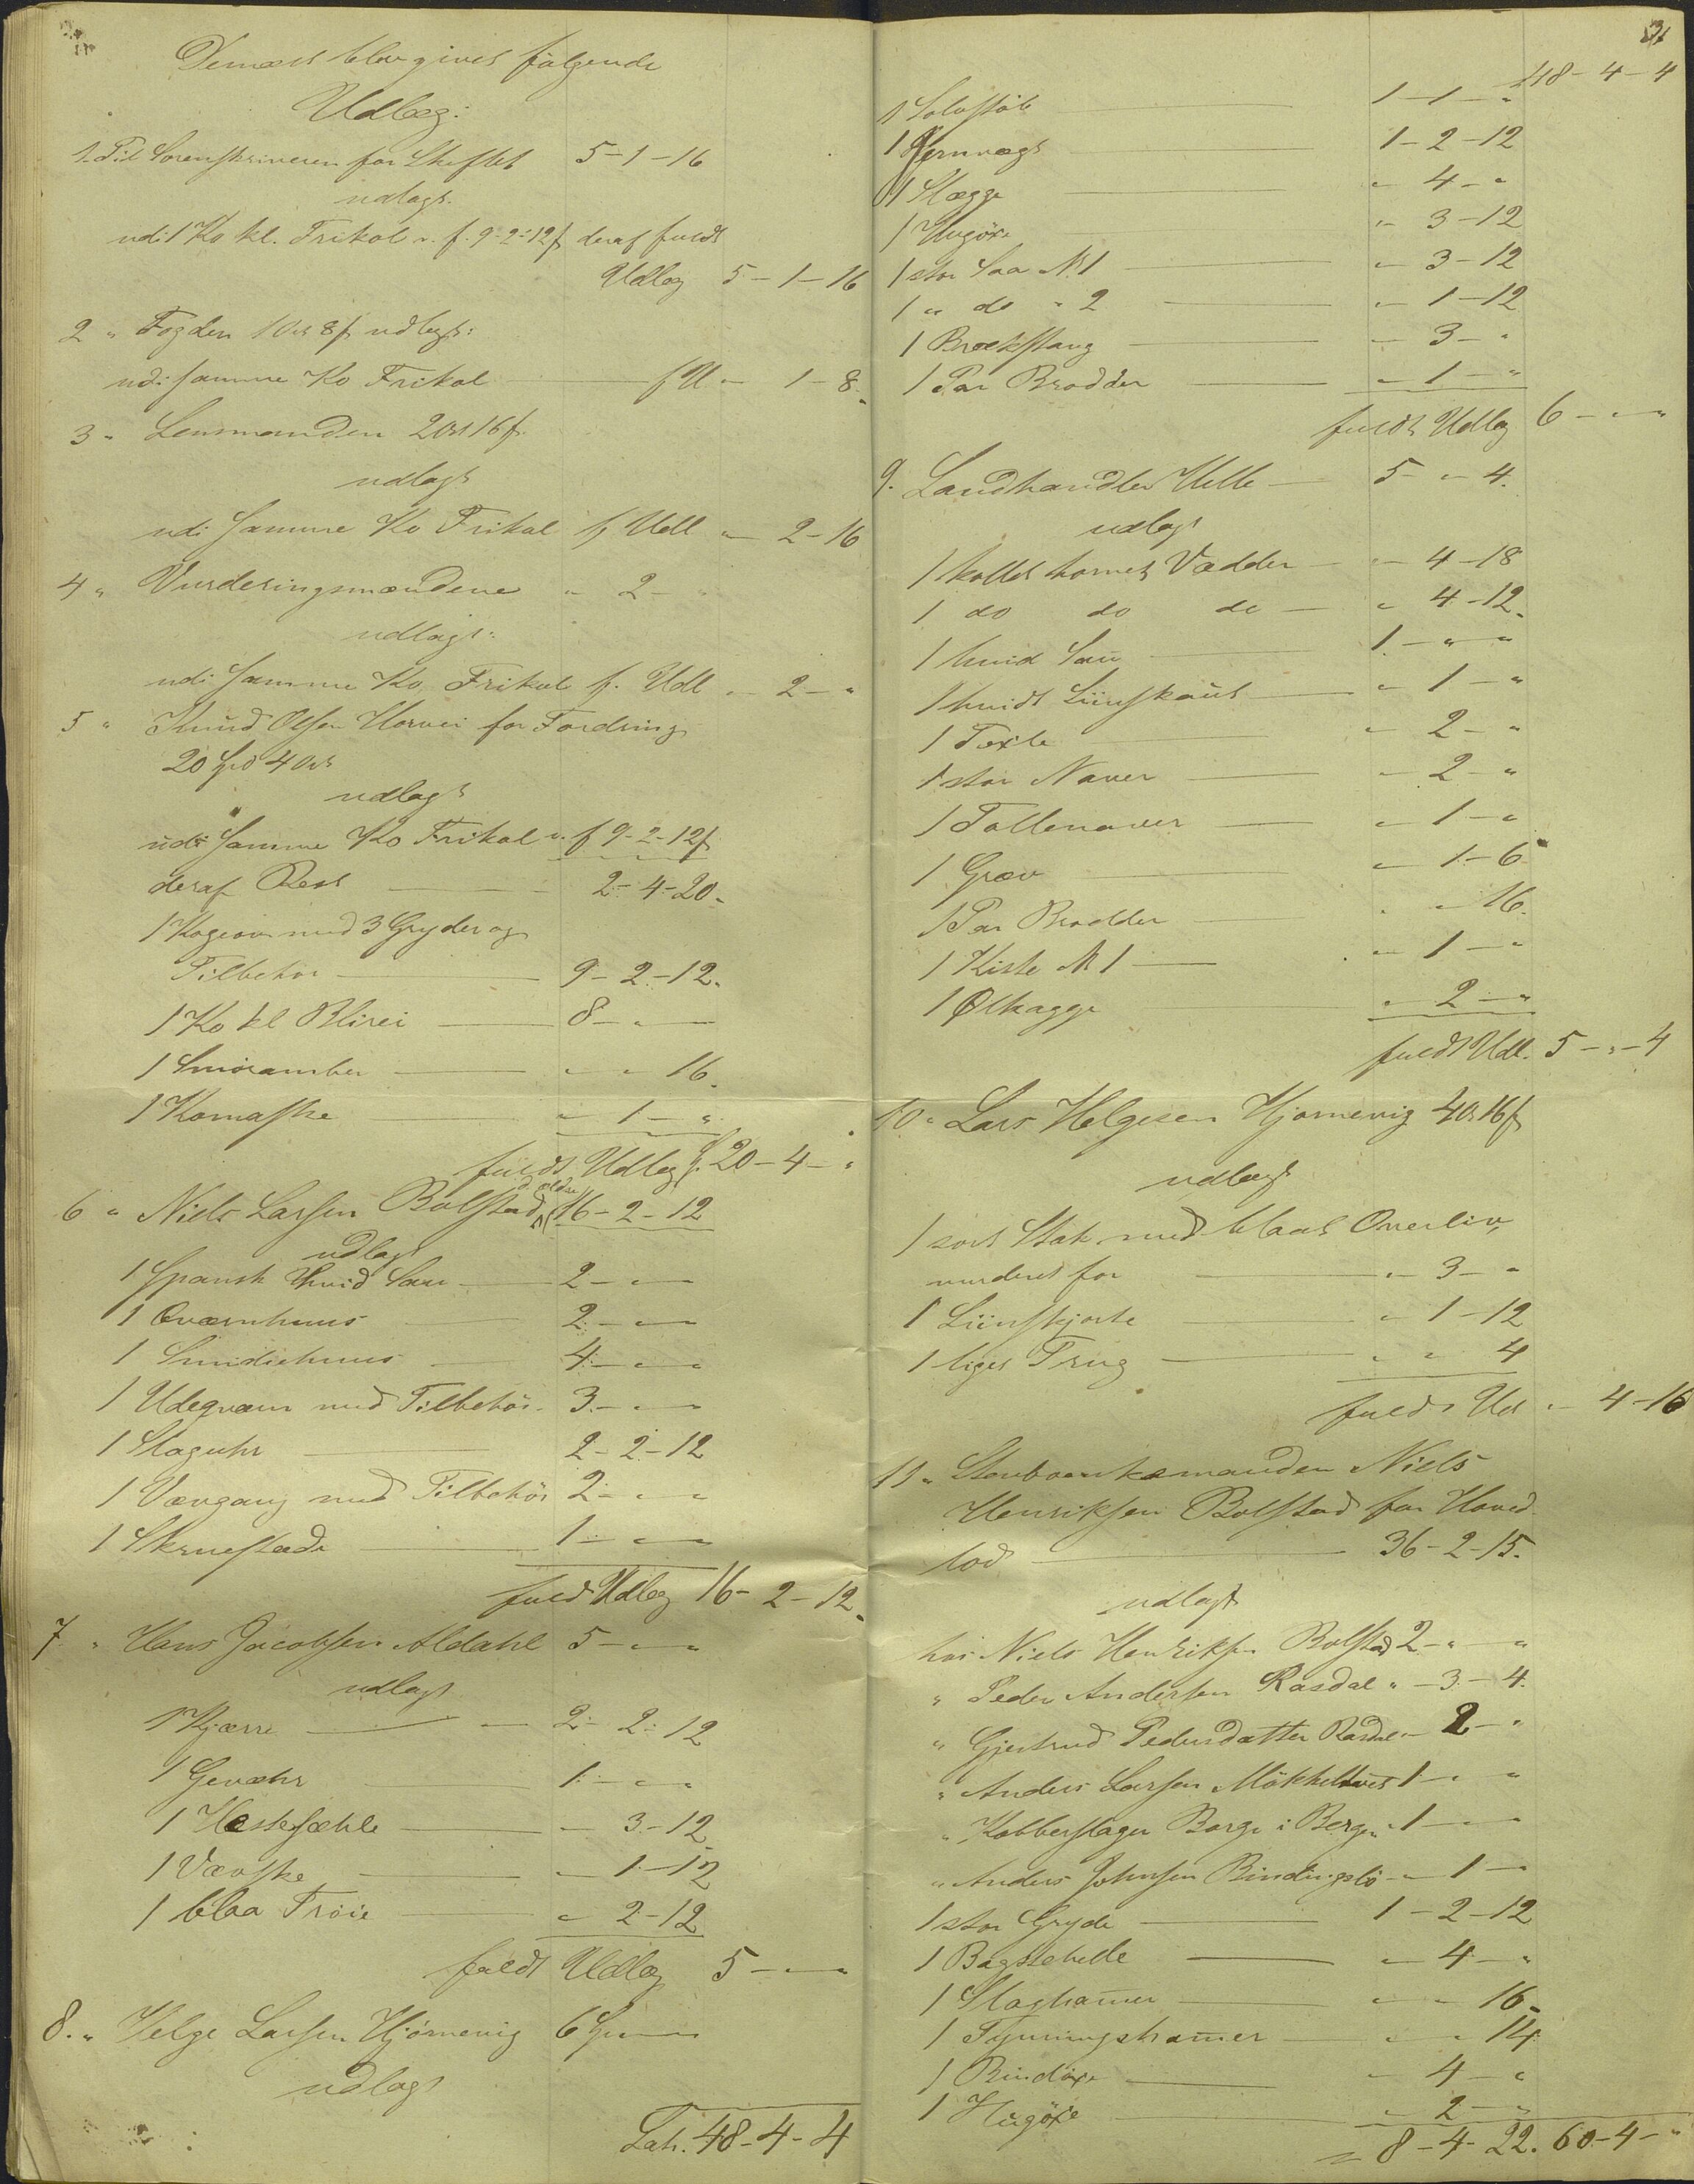 Dernæst blev givet følgende
Udlæg:
1. Til Sorenskriveren for Skiftet 5-1-16
udlagt.
udi 1 Ko kl. Frikol v. f. 9-2-12 ß deraf fuldt
Udlæg 5-1-16
2 " Fogden 1 Ort 8 ß udlagt:
udi samme Ko Frikol f U " 1-8.
3 " Lensmanden 2 Ort 16 ß.
udlagt
udi samme Ko Frikol f Udl " 2-16
4 " Vurderingsmændene " 2 - "
udlagt:
udi samme Ko Frikol f. Udl " 2 - "
5 " Knud Olsen Horvei for Fordring
20 Spd 4 Ort
udlagt
udi samme Ko Frikol v. f 9-2-12 ß
deraf Rest 2-4-20.
1 Kogeovn med 3 Gryder og
Tilbehør 9-2-12.
1 Ko kl Blirei 8 - " - "
1 Smöramber " - " 16.
1 Komaske " - 1 - "
fuldt Udlæg 20-4- "
6 " Niels Larsen Bolstad d ældre 16-2-12
udlagt
1 Spansk hvid Sau 2 - " - "
1 Qværnhuus 2 - " - "
1 Smidiehuus 4 - " - "
1 Udeqværn med Tilbehör 3 - " - "
1 Slaguhr 2-2-12
1 Vævgang med Tilbehör 2 - " - "
1 Skruestade 1 - " - "
fuld Udlæg 16-2-12.
7 " Hans Jacobsen Aldahl 5 - " - "
udlagt
1 Kjærre 2-2-12
1 Gevæhr 1 - " - "
1 Hestesæhle " 3-12
1 Vævske " 1-12
1 blaa Tröie " 2-12
fuldt Udlæg 5 - " - "
8. " Helge Larsen Hjörnevig 6 Sp " - "
udlagt
Lat. 48-4-4
31
48-4-4
1 Solvstöb 1-1- "
1 Jernvægt 1-2-12
1 Slægge " 4 - "
1 Hugöxe " 3-12
1 stor Saa N. 1 " 3-12
1 " do " 2 " 1-12
1 Brækstang " 3 - "
1 Par Brodder " 1 - "
fuldt Udlæg 6 - " - "
9. Landhandler Helle 5 - " 4.
udlagt
1 kollet hornet Vædder " 4-18
1 do do do " 4-12.
1 hvid Sau 1 - " - "
1 hvidt Liinskaut " 1 - "
1 Texle " 2 - "
1 stor Naver " 2 - "
1 Tollenaver " 1 - "
1 Græv " 1-6
1 Par Brodder " " 16.
1 Kiste N 1 " 1 - "
1 Ølkagge " 2 - "
fuldt Udl. 5 - " - 4
10 " Lars Helgesen Hjornevig 4 Ort 16 ß
udlagt
1 sort Stak med blaat Overliv,
vurderet for " - 3 - "
1 Liinskjorte " 1-12
1 liget Trug " " 4
fuldt Ud " 4-16
11 " Stervboenkemanden Niels
Henriksen Bolstad for Hoved
lod 36-2-15.
udlagt
hos Niels Henriksen Bolstad 2 - " - "
" Peder Andersen Rasdal " - 3 - 4.
" Gjertrud Pedersdatter Rasdal " 2 - "
" Anders Larsen Mökheltvet 1 - " - "
" Kobberslager Borge i Bergen 1 - " - "
" Anders Johnsen Bindingslö " 1 - "
1 stor Gryde 1-2-12
1 Bagstehelle " 4 - "
1 Slaghamer " " 16.
1 Tynningshamer " " 14
1 Bindöxe " 4 - "
1 Hugöxe " 2 - "
8-4-22. 60-4- "